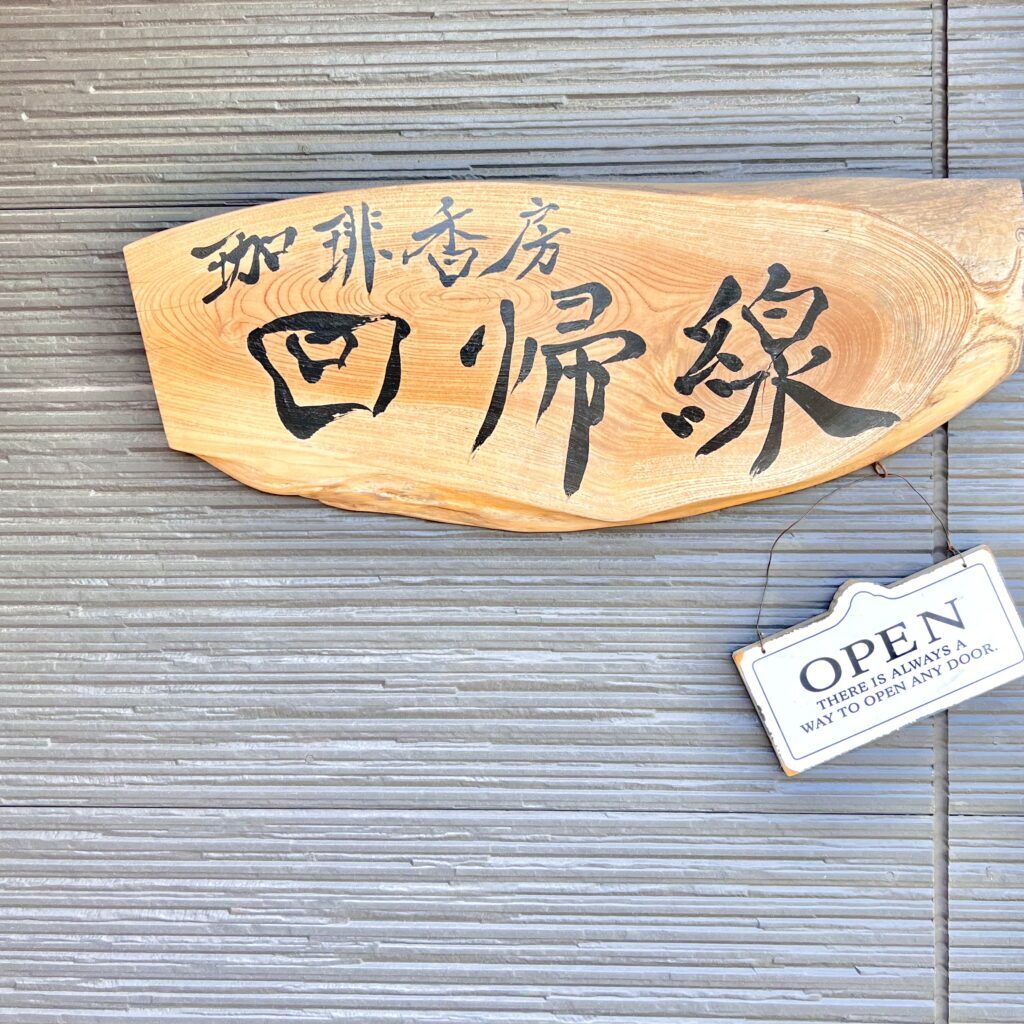 珈琲香房
回帰線
OPEN
THERE IS ALWAYS A
WAY TO OPEN ANY DOOR.